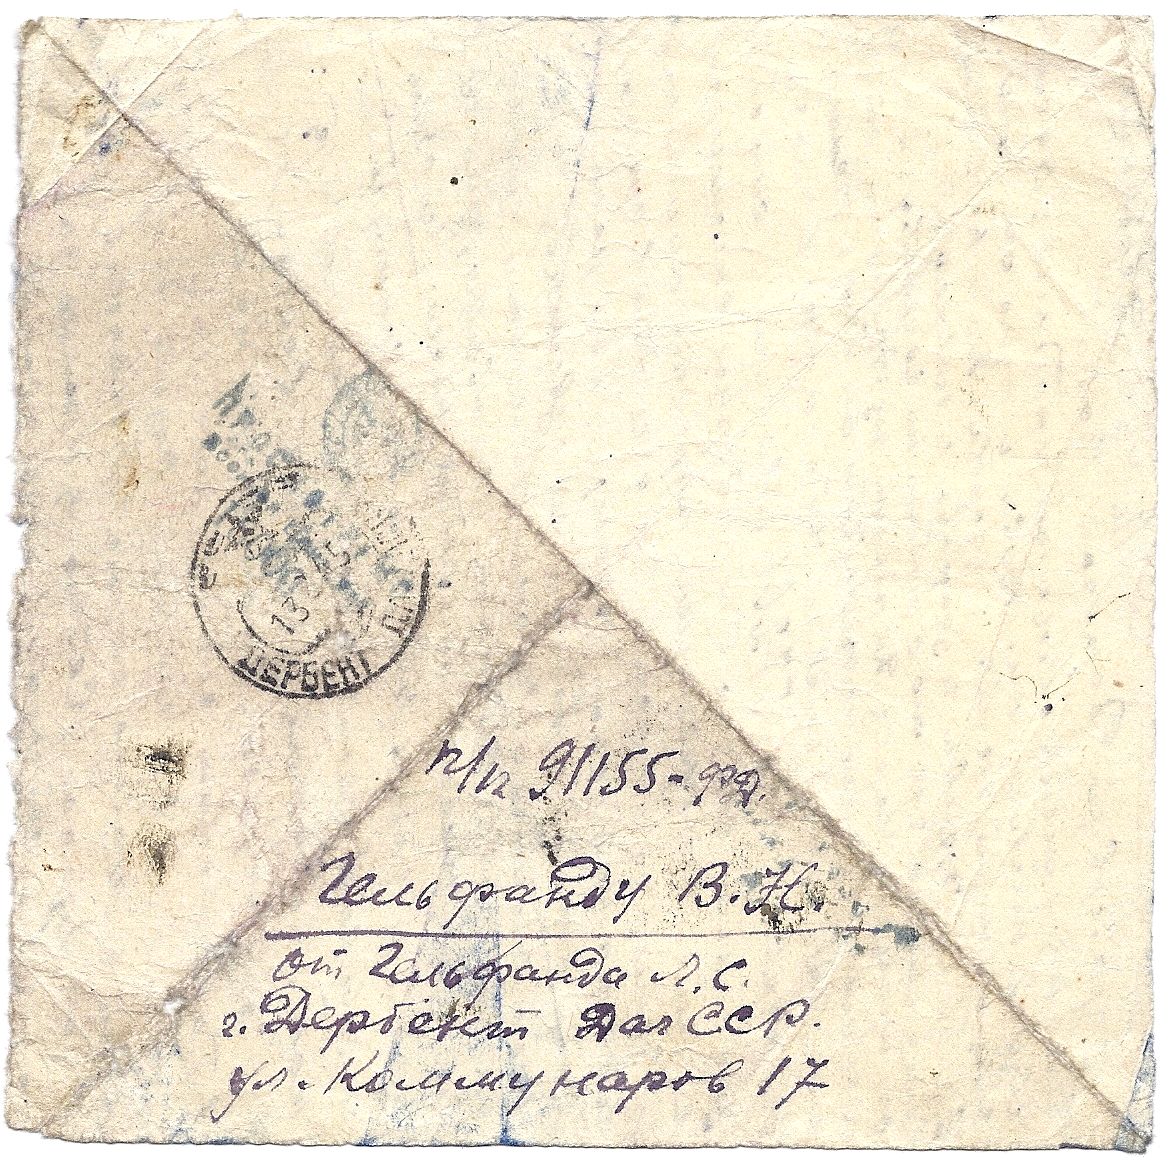 13
ДЕРБЕНТ
п/п 91155-
Гельфанду В. Н.
от Гельфанда Л. С.
г. Дербент Даг ССР.
ул. Коммунаров 17